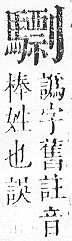 譌字舊註音
棒姓也誤